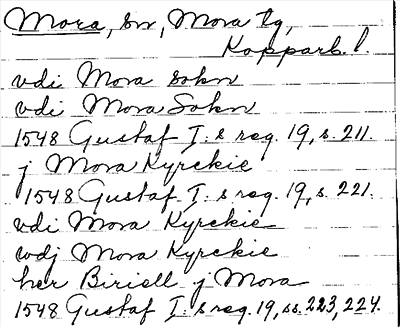 Mora, sn, Mora tg,
Kopparb. l.
vdi Mora sokn
vdi Mora Sokn
1548 Gustaf I:s reg. 19, s. 211.
j Mora Kyrckie
1548 Gustaf I:s reg. 19, s. 221.
vdi Mora Kyrckie
wdj Mora Kyrckie
her Biriell j Mora
1548 Gustaf I:s reg. 19, ss. 223, 224.